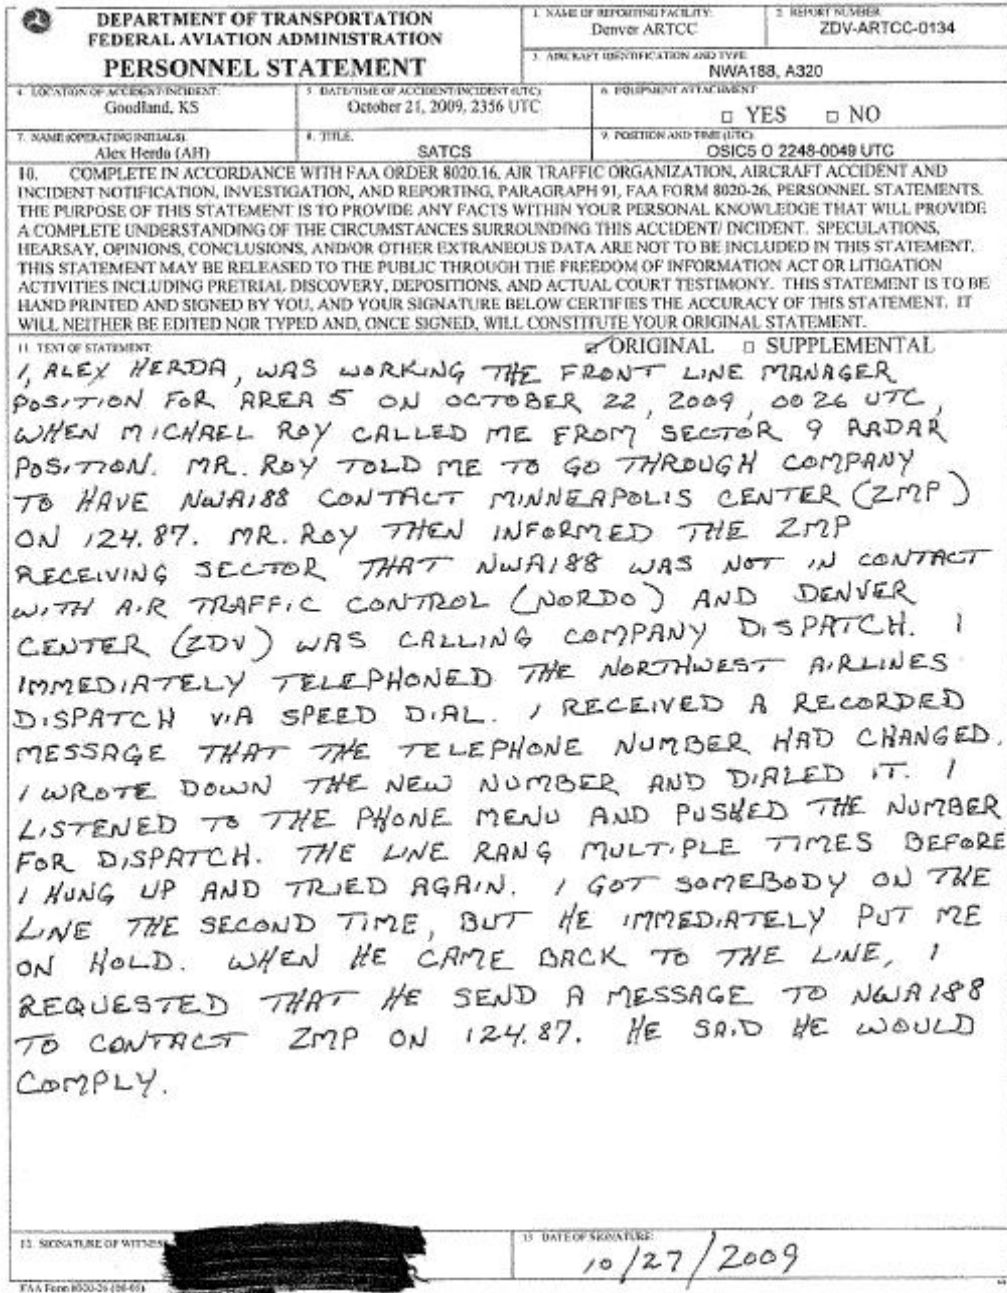 DEPARTMENT OF TRANSPORTATION
FEDERAL AVIATION ADMINISTRATION
PERSONNEL STATEMENT
1. NAME OF REPORTING FACILITY:
Denver ARTCC
2. REPORT NUMBER
ZDV-ARTCC-0134
3. AIRCRAFT IDENTIFICATION AND TYPE
NWA188, A320
4. LOCATION OF ACCIDENT/INCIDENT:
Goodland, KS
5. DATE/TIME OF ACCIDENT/INCIDENT (UTC)
October 21, 2009, 2356 UTC
6. EQUIPMENT ATTACHMENT
□ YES □ NO
7. NAME (OPERATING INITIALS)
Alex Herda (AH)
8. TITLE.
SATCS
9. POSITION AND TIME (UTC)
OSIC5 O 2248-0049 UTC
10. COMPLETE IN ACCORDANCE WITH FAA ORDER 8020.16, AIR TRAFFIC ORGANIZATION, AIRCRAFT ACCIDENT AND
INCIDENT NOTIFICATION, INVESTIGATION, AND REPORTING, PARAGRAPH 91, FAA FORM 8020-26, PERSONNEL STATEMENTS.
THE PURPOSE OF THIS STATEMENT IS TO PROVIDE ANY FACTS WITHIN YOUR PERSONAL KNOWLEDGE THAT WILL PROVIDE
A COMPLETE UNDERSTANDING OF THE CIRCUMSTANCES SURROUNDING THIS ACCIDENT/ INCIDENT. SPECULATIONS,
HEARSAY, OPINIONS, CONCLUSIONS, AND/OR OTHER EXTRANEOUS DATA ARE NOT TO BE INCLUDED IN THIS STATEMENT.
THIS STATEMENT MAY BE RELEASED TO THE PUBLIC THROUGH THE FREEDOM OF INFORMATION ACT OR LITIGATION
ACTIVITIES INCLUDING PRETRIAL DISCOVERY, DEPOSITIONS, AND ACTUAL COURT TESTIMONY. THIS STATEMENT IS TO BE
HAND PRINTED AND SIGNED BY YOU, AND YOUR SIGNATURE BELOW CERTIFIES THE ACCURACY OF THIS STATEMENT. IT
WILL NEITHER BE EDITED NOR TYPED AND, ONCE SIGNED, WILL CONSTITUTE YOUR ORIGINAL STATEMENT.
11. TEXT OF STATEMENT: ☑ ORIGINAL □ SUPPLEMENTAL
I, ALEX HERDA, WAS WORKING THE FRONT LINE MANAGER
POSITION FOR AREA 5 ON OCTOBER 22, 2009, 0026 UTC,
WHEN MICHAEL ROY CALLED ME FROM SECTOR 9 RADAR
POSITION. MR. ROY TOLD ME TO GO THROUGH COMPANY
TO HAVE NWA188 CONTACT MINNEAPOLIS CENTER (ZMP)
ON 124.87. MR. ROY THEN INFORMED THE ZMP
RECEIVING SECTOR THAT NWA188 WAS NOT IN CONTACT
WITH AIR TRAFFIC CONTROL (NORDO) AND DENVER
CENTER (ZDV) WAS CALLING COMPANY DISPATCH. I
IMMEDIATELY TELEPHONED THE NORTHWEST AIRLINES
DISPATCH VIA SPEED DIAL. I RECEIVED A RECORDED
MESSAGE THAT THE TELEPHONE NUMBER HAD CHANGED.
I WROTE DOWN THE NEW NUMBER AND DIALED IT. I
LISTENED TO THE PHONE MENU AND PUSHED THE NUMBER
FOR DISPATCH. THE LINE RANG MULTIPLE TIMES BEFORE
I HUNG UP AND TRIED AGAIN. I GOT SOMEBODY ON THE
LINE THE SECOND TIME, BUT HE IMMEDIATELY PUT ME
ON HOLD. WHEN HE CAME BACK TO THE LINE, I
REQUESTED THAT HE SEND A MESSAGE TO NWA188
TO CONTACT ZMP ON 124.87. HE SAID HE WOULD
COMPLY.
12. SIGNATURE OF WITNESS
13. DATE OF SIGNATURE:
10/27/2009
FAA Form 8020-26